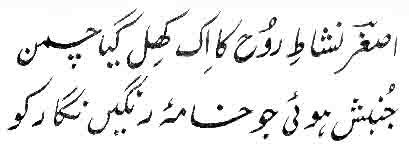 اصغرؔ نشاطِ رُوح کا اِک کھِل گیا چمن
جُنبش ہوئی جو خامۂ رنگیں نگار کو